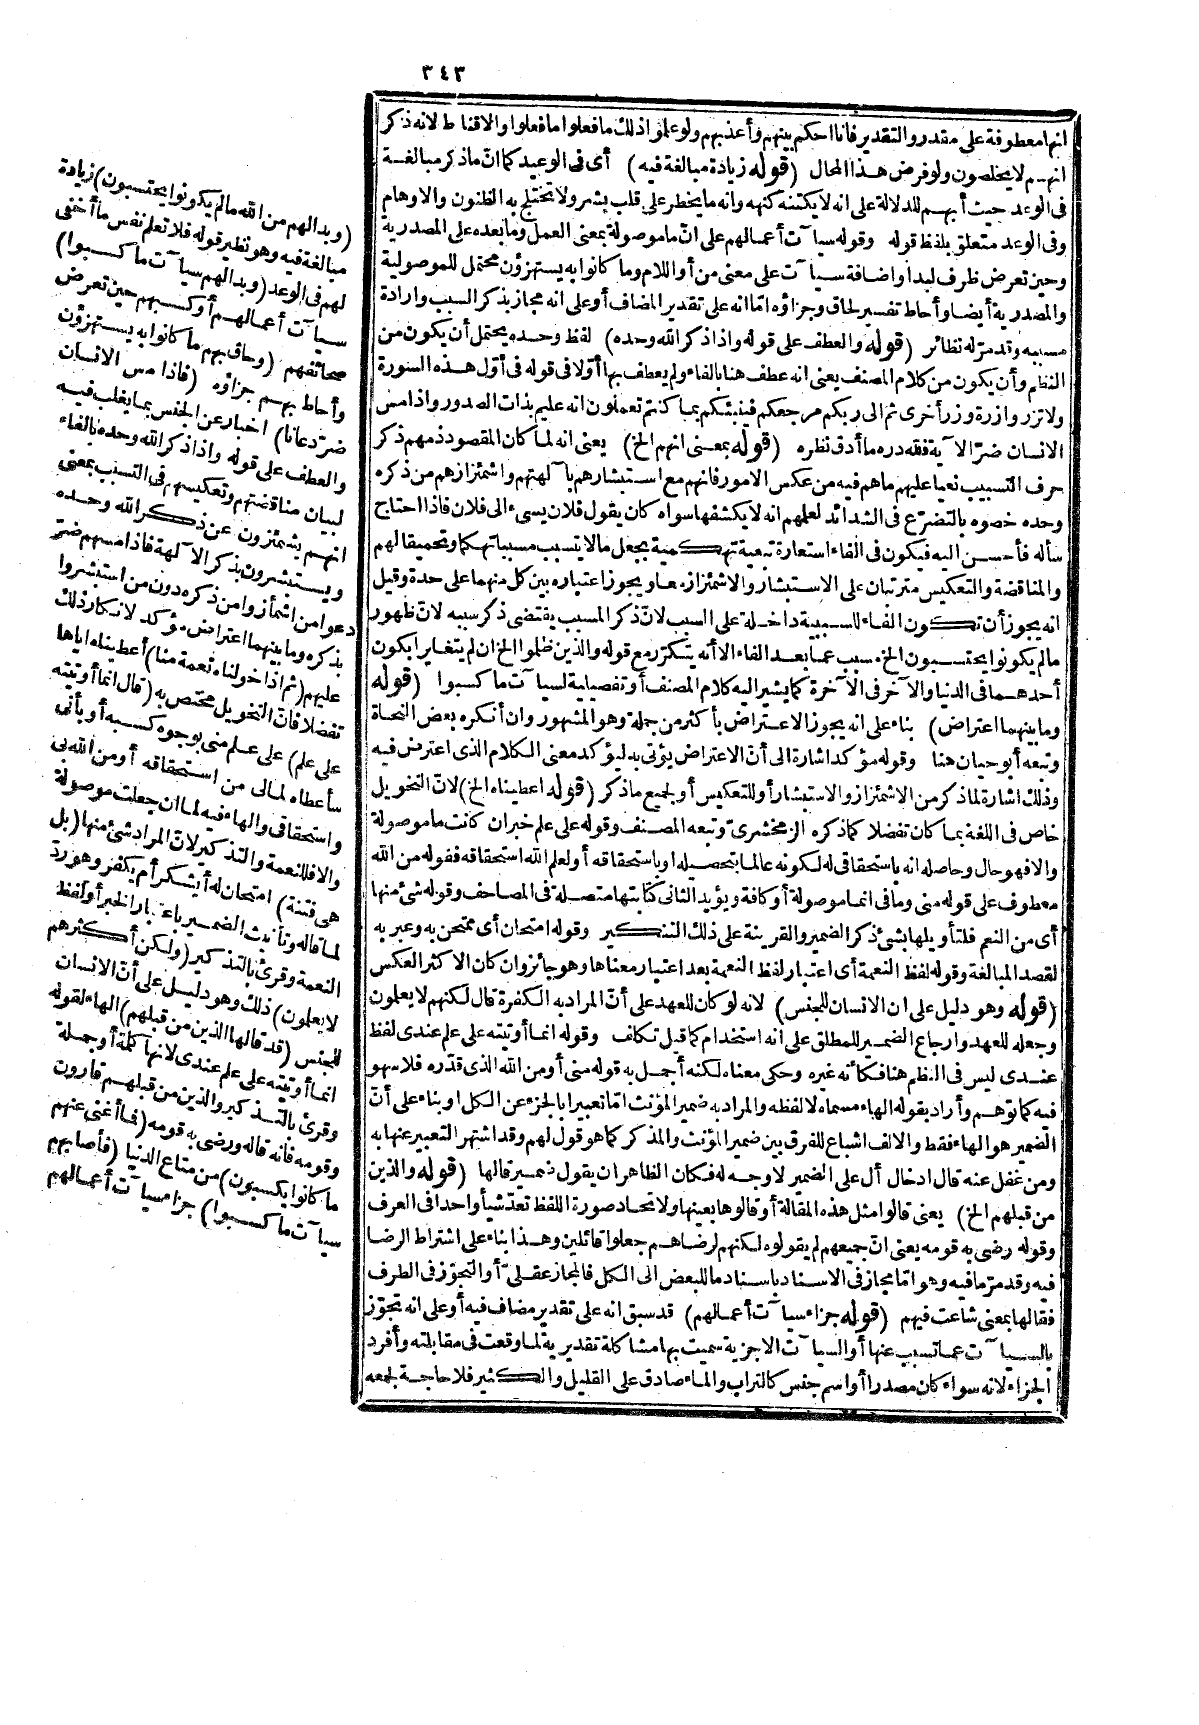 ٣٤٣
انها معطوفة على مقدر والتقدير فانا احكم بينهم وأعذبهم ولو علموا ذلك ما فعلوا ما فعلوا والاقناط لانه ذكر
انهم لا يخلصون ولو فرض هذا المحال (قوله زيادة مبالغة فيه) أى فى الوعيد كما انّ ما ذكر مبالغة
فى الوعد حيث أبهم للدلالة على انه لا يكتنه كنهه وانه ما يخطر على قلب بشر ولا تختلج به الظنون والاوهام
وفى الوعد متعلق بلفظ قوله وقوله سيآت أعمالهم على انّ ما موصولة بمعنى العمل وما بعده على المصدرية
وحين تعرض ظرف لبدا واضافة سيآت على معنى من أو اللام وما كانوا به يستهزؤن محتمل للموصولية
والمصدرية أيضا وأحاط تفسير لحاق وجزاؤه امّا انه على تقدير المضاف أو على انه مجاز بذكر السبب وارادة
مسببه وقد مرّ له نظائر (قوله والعطف على قوله واذا ذكر الله وحده) لفظ وحده يحتمل أن يكون من
النظم وأن يكون من كلام المصنف يعنى انه عطف هنا بالفاء ولم يعطف بها أولا فى قوله فى أول هذه السورة
ولا تزر وازرة وزر أخرى ثم الى ربكم مرجعكم فينبئكم بما كنتم تعملون انه عليم بذات الصدور واذا مس
الانسان ضرّ الآية فلله دره ما أدق نظره (قوله بمعنى انهم الخ) يعنى انه لما كان المقصود ذمهم ذكر
حرف التسبيب نعيا عليهم ما هم فيه من عكس الامور فانهم مع استبشارهم بآلهتهم واشمئزازهم من ذكره
وحده خصوه بالتضرّع فى الشدائد لعلمهم انه لا يكشفها سواه كأن يقول فلان يسىء الى فلان فاذا احتاج
سأله فأحسن اليه فيكون فى الفاء استعارة تبعية تهكمية بجعل ما لا يتسبب مسببا تهكما وتحميقا لهم
والمناقضة والتعكيس مترتبان على الاستبشار والاشمئزاز معا ويجوز اعتباره بين كل منهما على حدة وقيل
انه يجوز أن تكون الفاء للسببية داخلة على السبب لانّ ذكر المسبب يقتضى ذكر سببه لانّ ظهور
ما لم يكونوا يحتسبون الخ مسبب عما بعد الفاء الا أنه يتكرّر مع قوله والذين ظلموا الخ ان لم يتغايرا بكون
أحدهما فى الدنيا والآخر فى الآخرة كما يشير اليه كلام المصنف أو تفصيلية لسيآت ما كسبوا (قوله
وما بينهما اعتراض) بناء على انه يجوز الاعتراض بأكثر من جملة وهو المشهور وان أنكره بعض النحاة
وتبعه أبو حيان هنا وقوله مؤكد اشارة الى أنّ الاعتراض يؤتى به ليؤكد معنى الكلام الذى اعترض فيه
وذلك اشارة لما ذكر من الاشمئزاز والاستبشار أو للتعكيس أو لجميع ما ذكر (قوله اعطيناه الخ) لانّ التخويل
خاص فى اللغة بما كان تفضلا كما ذكره الزمخشرىّ وتبعه المصنف وقوله على علم خبر ان كانت ما موصولة
والا فهو حال وحاصله انه باستحقاقى له لكونه عالما بتحصيله او باستحقاقه أو لعلم الله استحقاقه فقوله من الله
معطوف على قوله منى وما فى انما موصولة أو كافة ويؤيد الثانى كتابتها متصلة فى المصاحف وقوله شئ منها
أى من النعم فلتأويلها بشئ ذكر الضمير والقرينة على ذلك التنكير وقوله امتحان أى ممتحن به وعبر به
لقصد المبالغة وقوله لفظ النعمة أى اعتبار لفظ النعمة بعد اعتبار معناها وهو جائز وان كان الاكثر العكس
(قوله وهو دليل على ان الانسان للجنس) لانه لو كان للعهد على أنّ المراد به الكفرة قال لكنهم لا يعلمون
وجعله للعهد وارجاع الضمير للمطلق على انه استخدام كما قيل تكلف وقوله انما أوتيته على علم عندى لفظ
عندى ليس فى النظم هنا فكأنه غيره وحكى معناه لكنه أجمل به قوله منى أو من الله الذى قدّره فلا سهو
فيه كما توهم وأراد بقوله الهاء مسماه لا لفظه والمراد به ضمير المؤنث امّا تعبيرا بالجزء عن الكل او بناء على أنّ
الضمير هو الهاء فقط والالف اشباع للفرق بين ضمير المؤنث والمذكر كما هو قول لهم وقد اشتهر التعبير عنها به
ومن غفل عنه قال ادخال أل على الضمير لا وجه له فكان الظاهر ان يقول ضمير قالها (قوله والذين
من قبلهم الخ) يعنى قالوا مثل هذه المقالة أو قالوها بعينها ولاتحاد صورة اللفظ تعدّ شيأ واحدا فى العرف
وقوله رضى به قومه يعنى انّ جميعهم لم يقولوه لكنهم لرضاهم جعلوا قائلين وهذا بناء على اشتراط الرضا
فيه وقد مرّ ما فيه وهو امّا مجاز فى الاسناد باسناد ما للبعض الى الكل فالمجاز عقلىّ أو التجوّز فى الطرف
فقالها بمعنى شاعت فيهم (قوله جزاء سيآت أعمالهم) قد سبق انه على تقدير مضاف فيه أو على انه تجوّز
بالسيآت عما تسبب عنها أو السيآت الاجزية سميت بها مشاكلة تقديرية لما وقعت فى مقابلته وأفرد
الجزاء لانه سواء كان مصدرا أو اسم جنس كالتراب والماء صادق على القليل والكثير فلا حاجة لجمعه
(وبدا لهم من الله ما لم يكونوا يحتسبون) زيادة
مبالغة فيه وهو نظير قوله فلا تعلم نفس ما أخفى
لهم فى الوعد (وبدا لهم سيآت ما كسبوا)
سيآت أعمالهم أو كسبهم حين تعرض
صحائفهم (وحاق بهم ما كانوا به يستهزؤن)
وأحاط بهم جزاؤه (فاذا مس الانسان
ضرّ دعانا) اخبار عن الجنس بما يغلب فيه
والعطف على قوله واذا ذكر الله وحده بالفاء
لبيان مناقضتهم وتعكيسهم فى التسبب بمعنى
انهم يشمئزون عن ذكر الله وحده
ويستبشرون بذكر الآلهة فاذا مسهم ضرّ
دعوا من اشمأزوا من ذكره دون من استبشروا
بذكره وما بينهما اعتراض مؤكد لانكار ذلك
عليهم (ثم اذا خولناه نعمة منا) أعطيناه اياها
تفضلا فانّ التخويل مختص به (قال انما أوتيته
على علم) على علم منى بوجوه كسبه أو بأنى
سأعطاه لمالى من استحقاقه أو من الله بى
واستحقاقى والهاء فيه لما ان جعلت موصولة
والا فللنعمة والتذكير لانّ المراد شئ منها (بل
هى فتنة) امتحان له أيشكر أم يكفر وهو ردّ
لما قاله وتأنيث الضمير باعتبار الخبر أو لفظ
النعمة وقرئ بالتذكير (ولكن أكثرهم
لا يعلمون) ذلك وهو دليل على أنّ الانسان
للجنس (قد قالها الذين من قبلهم) الهاء لقوله
انما أوتيته على علم عندى لانها كلمة أو جملة
وقرئ بالتذكير والذين من قبلهم قارون
وقومه فانه قاله ورضى به قومه (فما أغنى عنهم
ما كانوا يكسبون) من متاع الدنيا (فأصابهم
سيآت ما كسبوا) جزاء سيآت أعمالهم